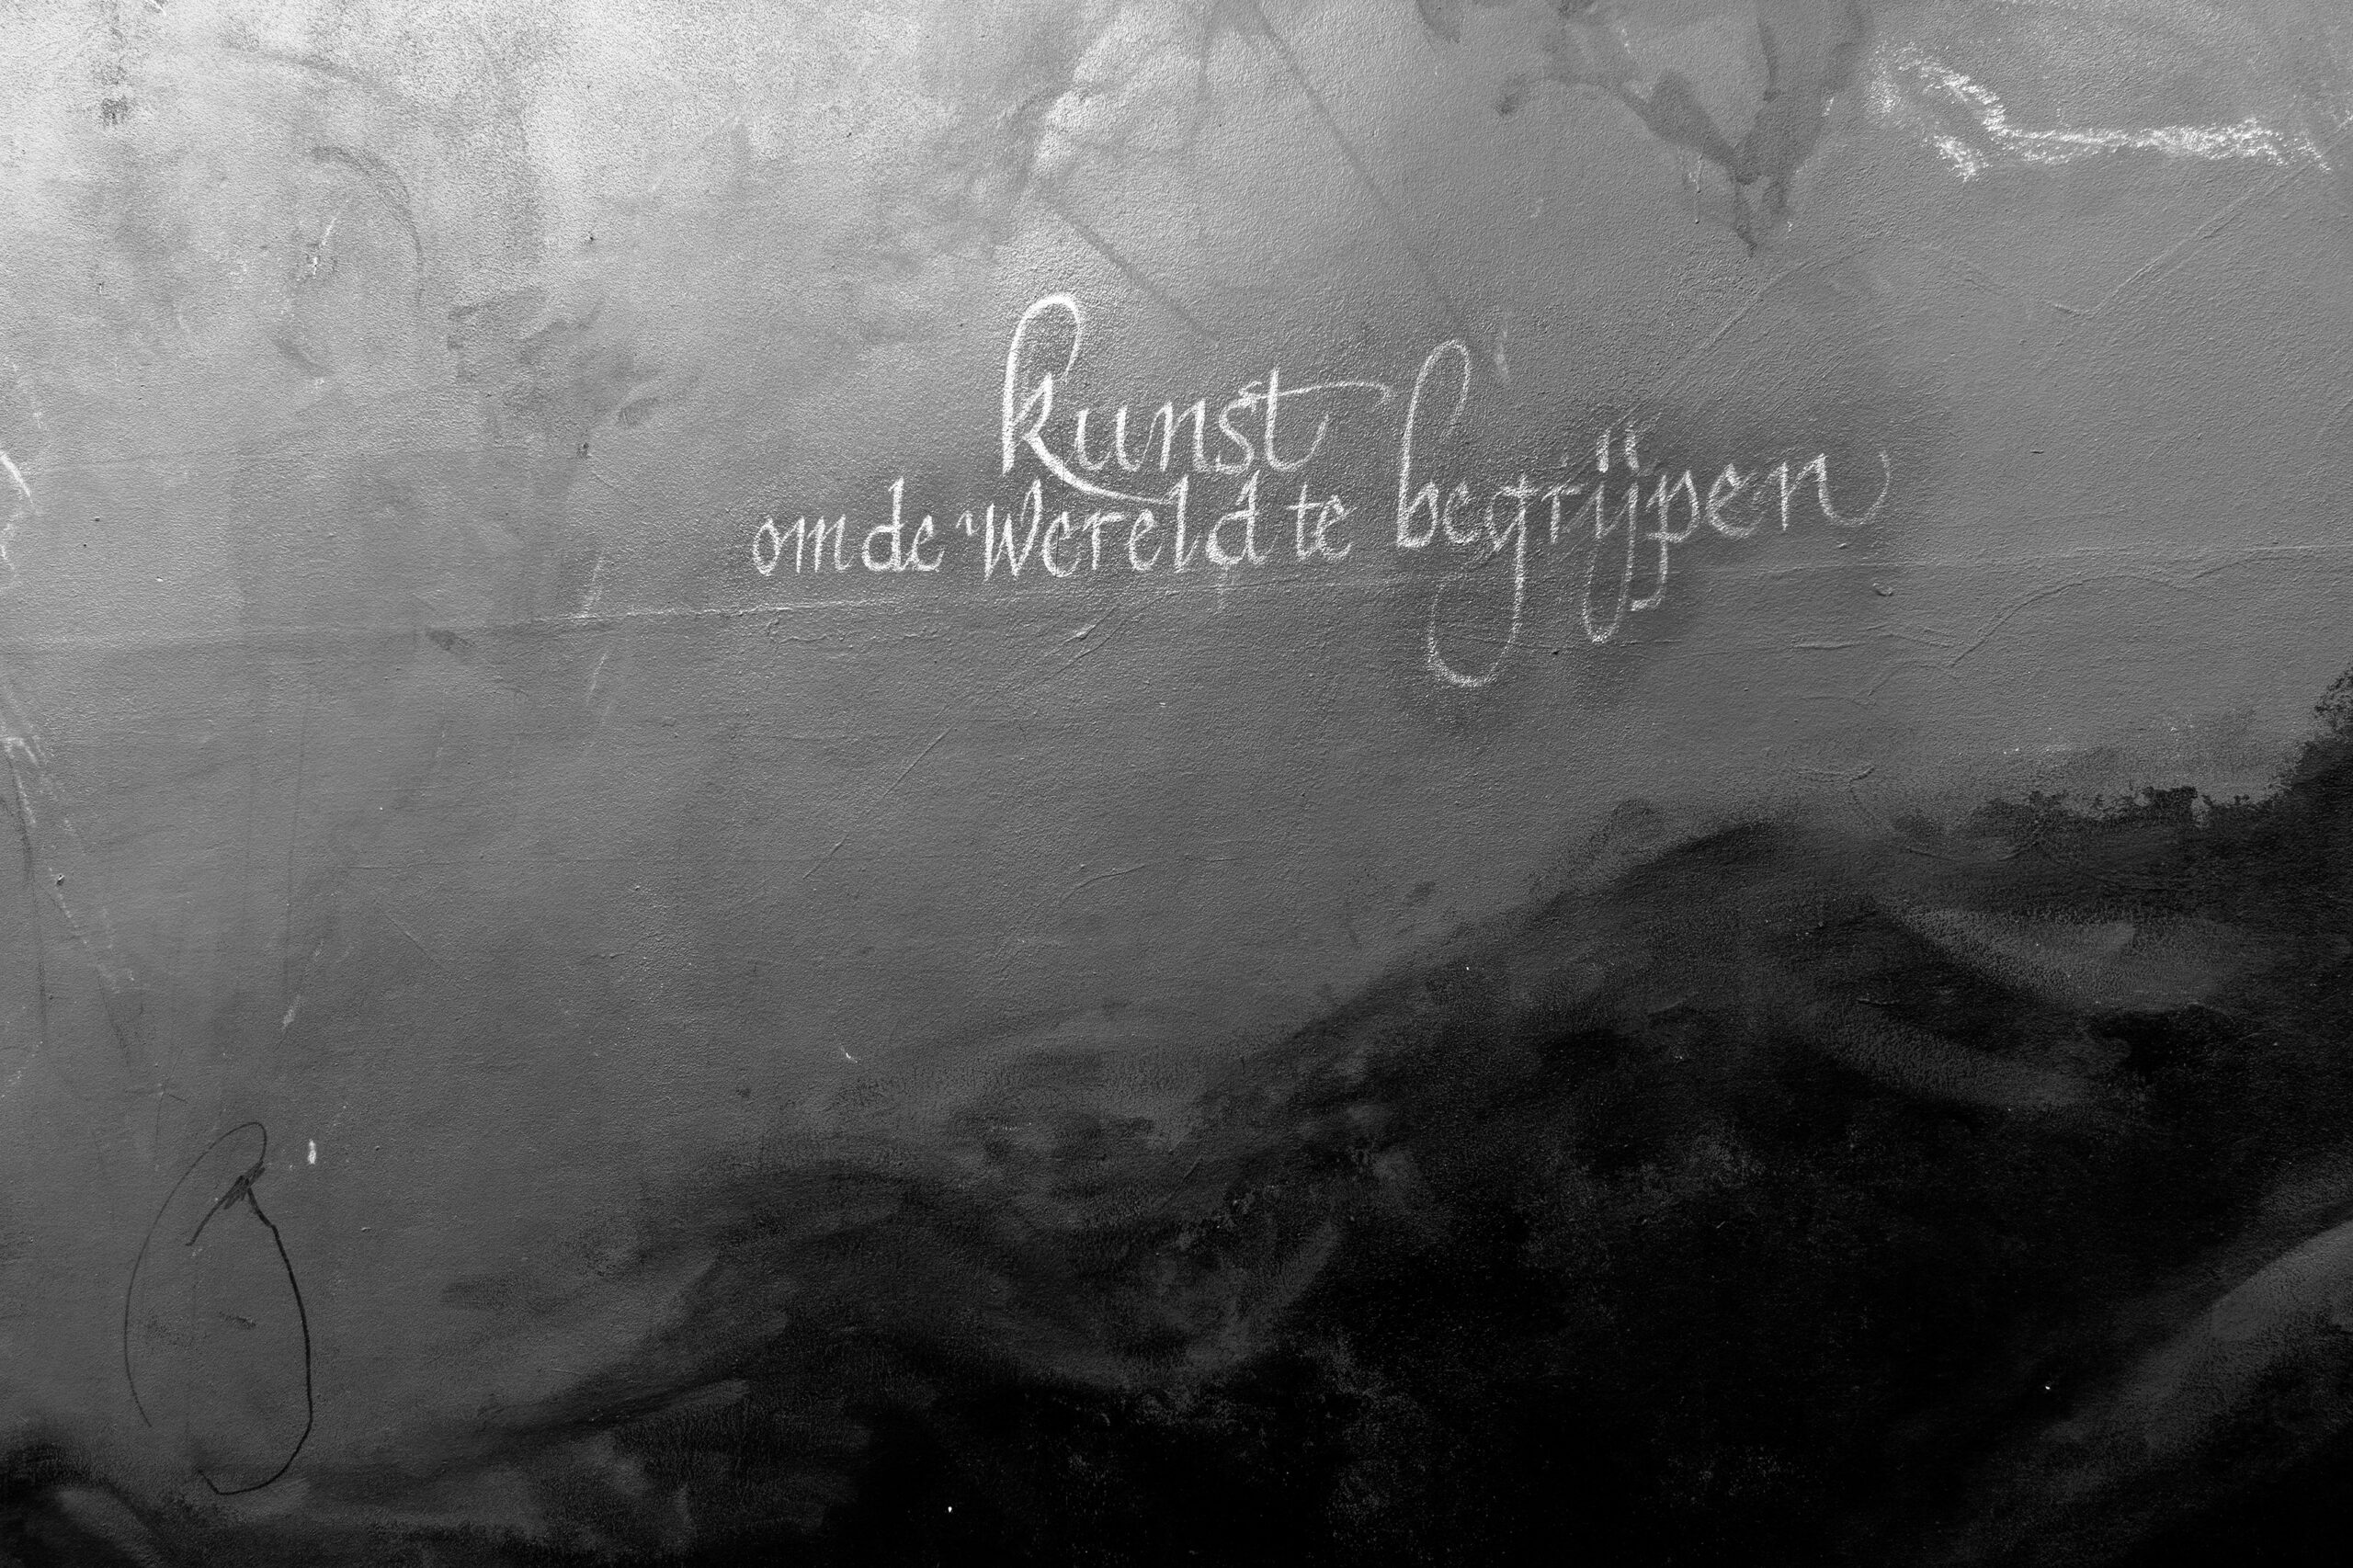 kunst
om de wereld te begrijpen